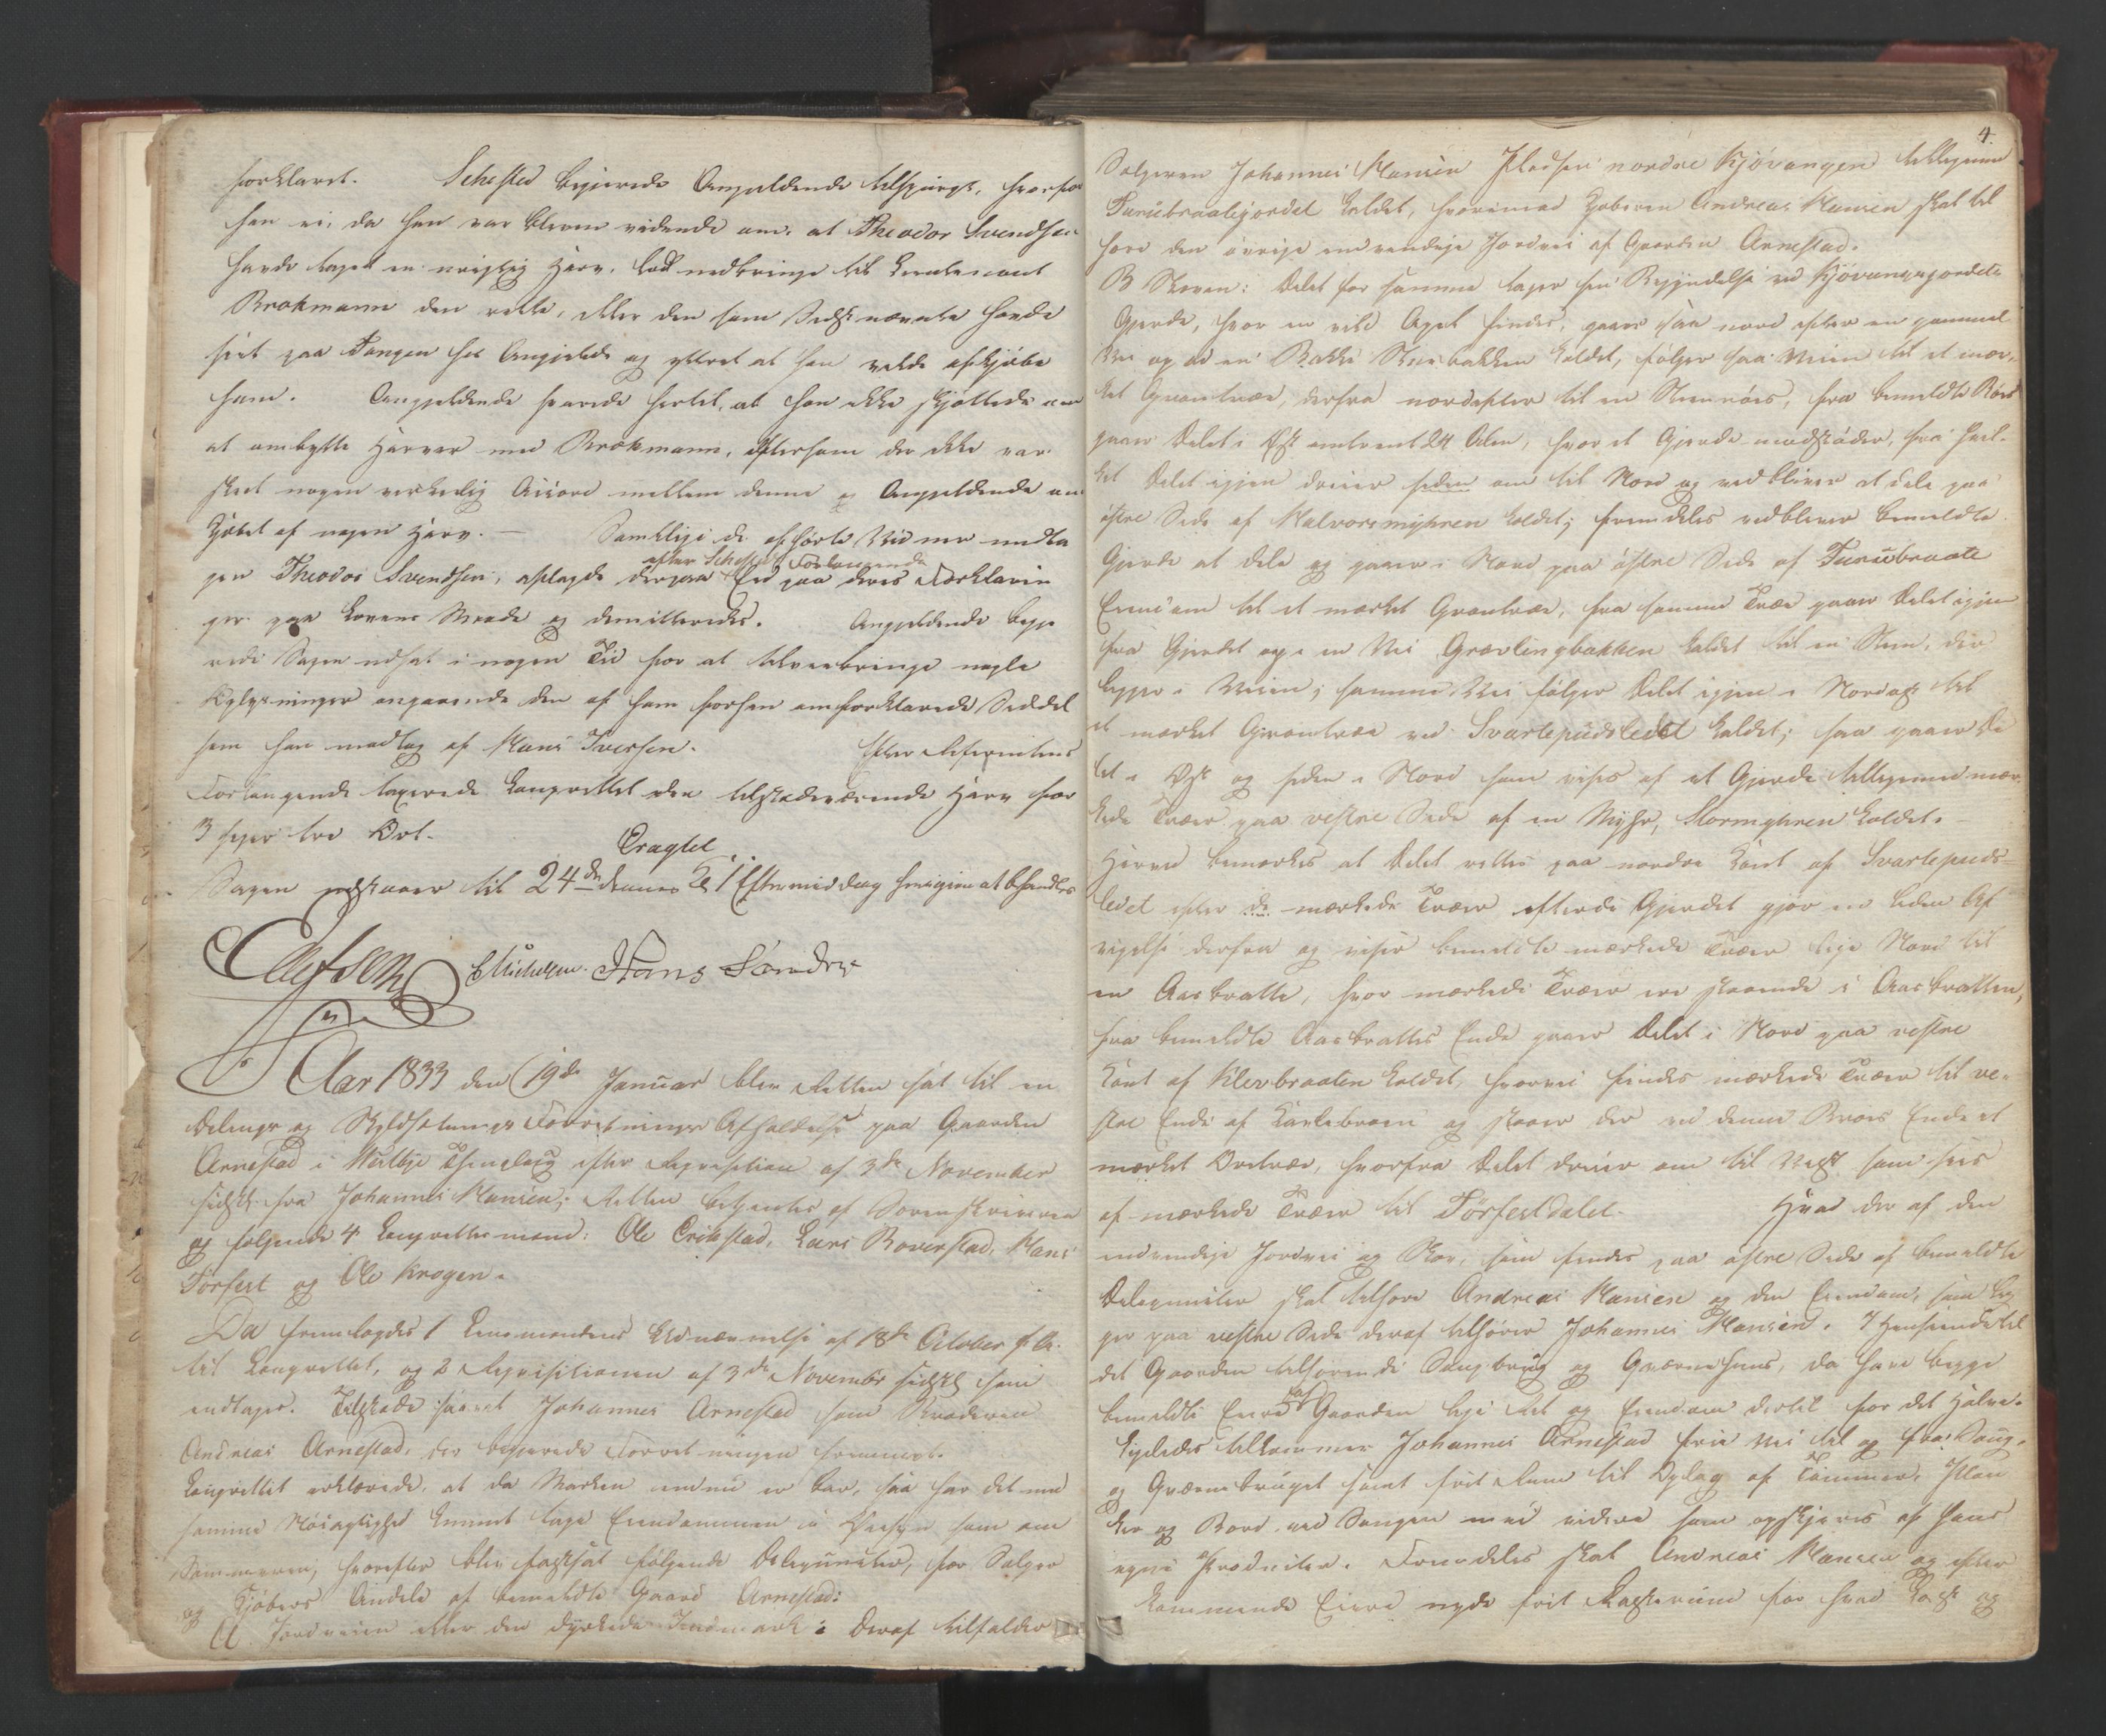 forklaret. Schested begjerede Angjeldende tilspurgt, hvorfor
han ei, da han var bleven vidende om, at Theodor Svendsen
havde taget en urigtig Harv, lod nedbringe til Lieutenant
Brokmann den rette, eller den som Sidstnævnte havde
seet paa Tangen hos Angjeldende og yttret at han vilde afkjøbe
ham. Angjeldende svarede hertil, at han ikke skjøttede om
at ombytte Harver med Brokmann, eftersom der ikke var
skeet nogen verkelig Accord mellem denne og Angjeldende om
Kjøbet af nogen Harv. — Samtlige de afhørte Vidner undta
efter Schesteds Forlangende
gen Theodor Svendsen, aflagde derpaa Eed paa deres Forklarin
ger paa Lovens Maade og demitteredes. Angjeldende begje
rede Sagen udsat i nogen Tid for at tilveiebringe nogle
Oplysninger angaaende den af ham forhen omforklarede Seddel
som han modtog af Hans Iversen. Efter Referentens
Forlangende taxerede Laugrettet den tilstedeværende Harv for
3 siger tre Ort.
Eragtet
Sagen udstaaer til 24de dennes Kl 1 Eftermiddag heri igien at behandles
Ellefsen EMichelsen. Hans Sundbye
Aar 1833 den 19de Januar blev Retten sat til en
Delings og Skyldsætnings Forretnings Afholdelse paa Gaarden
Arnestad i Hvitbye Thinglaug efter Reqvisition af 3de November
sidstl. fra Johannes Hansen; Retten betjentes af Sorenskriveren
og følgende 4 Laugrettesmænd: Ole Erikstad, Lars Roverstad, Hans
Tørfest og Ole Krogen.
Da fremlagdes 1 Lensmandens Udnævnelse af 18de October f. A.
til Laugrettet, og 2 Reqvisitionen af 3de November sidstl som
indtages. Tilstede saavel Johannes Arnestad som Broderen
Andreas Arnestad, der begjerede Forretningen fremmet.
Laugrettet erklærede, at da Marken endnu er bar, saa har det med
samme Nøiagtighed kunnet tage Eiendommen i Øiesyn som om
Sommeren, hvorefter blev fastsat følgende Delepuncter, for Sælger
og Kjøbers Andele af bemeldte Gaard Arnestad:
A Jordveien eller den dyrkede Indmark: Deraf tilfalder
4.
Sælgeren Johannes Hansen Pladsen nordre Kjøvangen tilligemed
Furubraatejordet kaldet, hvorimod Kjøberen Andreas Hansen skal til
høre den øvrige indvendige Jordvei af Gaarden Arnestad.
B Skoven: Delet for samme tager sin Begyndelse ved Kjøvangjordets
Gjerde, hvor en vild Apal findes, gaaer saa nord efter en gammel
Vei op ad en Bakke Steenbakken kaldet, følger saa Veien til et mær-
ket Grantræe, derfra nordefter til en Steenrøis, fra bemeldte Røis
gaaer Delet i Øst omtrent 24 Alen, hvor et Gjerde modstøder, fra hvil-
ket Delet igjen dreier siden om til Nord og vedbliver at dele paa
østre Side af Halvorsmyhren kaldet; fremdeles vedbliver bemeldte
Gjerde at dele og gaaer i Nord paa østre Side af Furubraate
Eiend'om til et mærket Grantræe, fra samme Træe gaaer Delet igjen
fra Gjerdet op i en Vei Grævlingbakken kaldet til en Steen, der
ligger i Veien; samme Vei følger Delet igjen i Nordost til
et mærket Grantræe ved Svartepudsledet kaldet; saa gaaer De
let i Øst og siden i Nord som vises af et Gjerde tilligemed mær-
kede Træer paa vestre Side af en Myhr, Stormyhren kaldet.
Herved bemærkes at Delet rettes paa nordre Kant af Svartepuds-
ledet efter de mærkede Træer efterdi Gjerdet gjør en liden Af
vigelse derfra og viser bemeldte mærkede Træer lige Nord til
en Aasbratte, hvor mærkede Træer ere staaende i Aasbratten,
fra bemeldte Aasbrattes Ende gaaer Delet i Nord paa vestre
Kant af Klevbraaten kaldet, hvorvei findes mærkede Træer til ve-
stre Ende af Kavlebroen og staaer der ved denne Broes Ende et
mærket Oretræe, hvorfra Delet dreier om til Vest som sees
af mærkede Træer til Tørfestdelet. Hvad der af den
indvendige Jordvei og Skov, som findes paa østre Side af bemeldte
Delepuncter skal tilhøre Andreas Hansen og den Eiendom, som lig
ger paa vestre Side deraf tilhører Johannes Hansen. I Henseende til
det Gaarden tilhørende Saugbrug og Qværnehuus, da have begge
bemeldte Eiere af Gaarden lige Ret og Eiendom dertil for det Halve.
Ligeledes tilkommer Johannes Arnestad frie Vei til og fra Saug-
og Qværnebruget samt frit Rum til Oplag af Tømmer, Plan
ker og Bord ved Saugen med videre som opskjæres af hans
egne Producter. Fremdeles skal Andreas Hansen og efter
kommende Eiere nyde frit Rasterum for hvad Last og